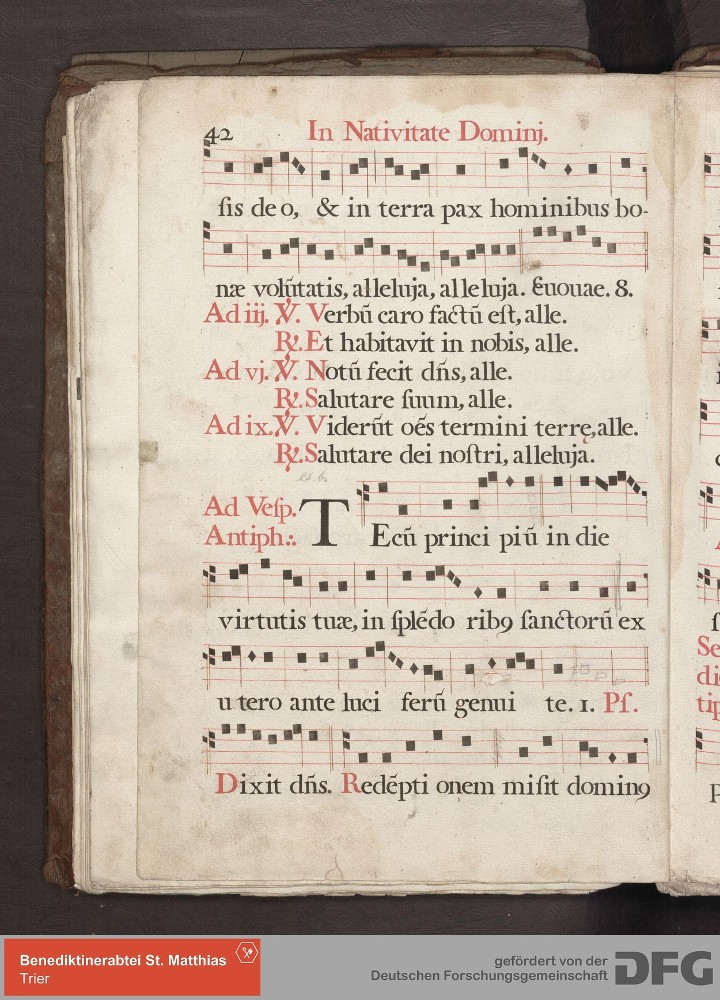 42 In Nativitate Dominj.
sis deo, & in terra pax hominibus bo-
næ volũtatis, alleluja, alleluja. Euouae. 8.
Ad iij. ℣. Verbũ caro factũ est, alle.
℟. Et habitavit in nobis, alle.
Ad vj. ℣. Notũ fecit dñs, alle.
℟. Salutare suum, alle.
Ad ix. ℣. Viderũt oẽs termini terre, alle.
℟. Salutare dei nostri, alleluja.
Ad Vesp.
Antiph:. TEcũ princi piũ in die
virtutis tuæ, in splẽdo rib9 sanctorũ ex
utero ante luci ferũ genui te. 1. Ps.
Dixit dñs. Redẽpti onem misit domin9
Benediktinerabtei St. Matthias
Trier
gefördert von der
Deutschen Forschungsgemeinschaft DFG